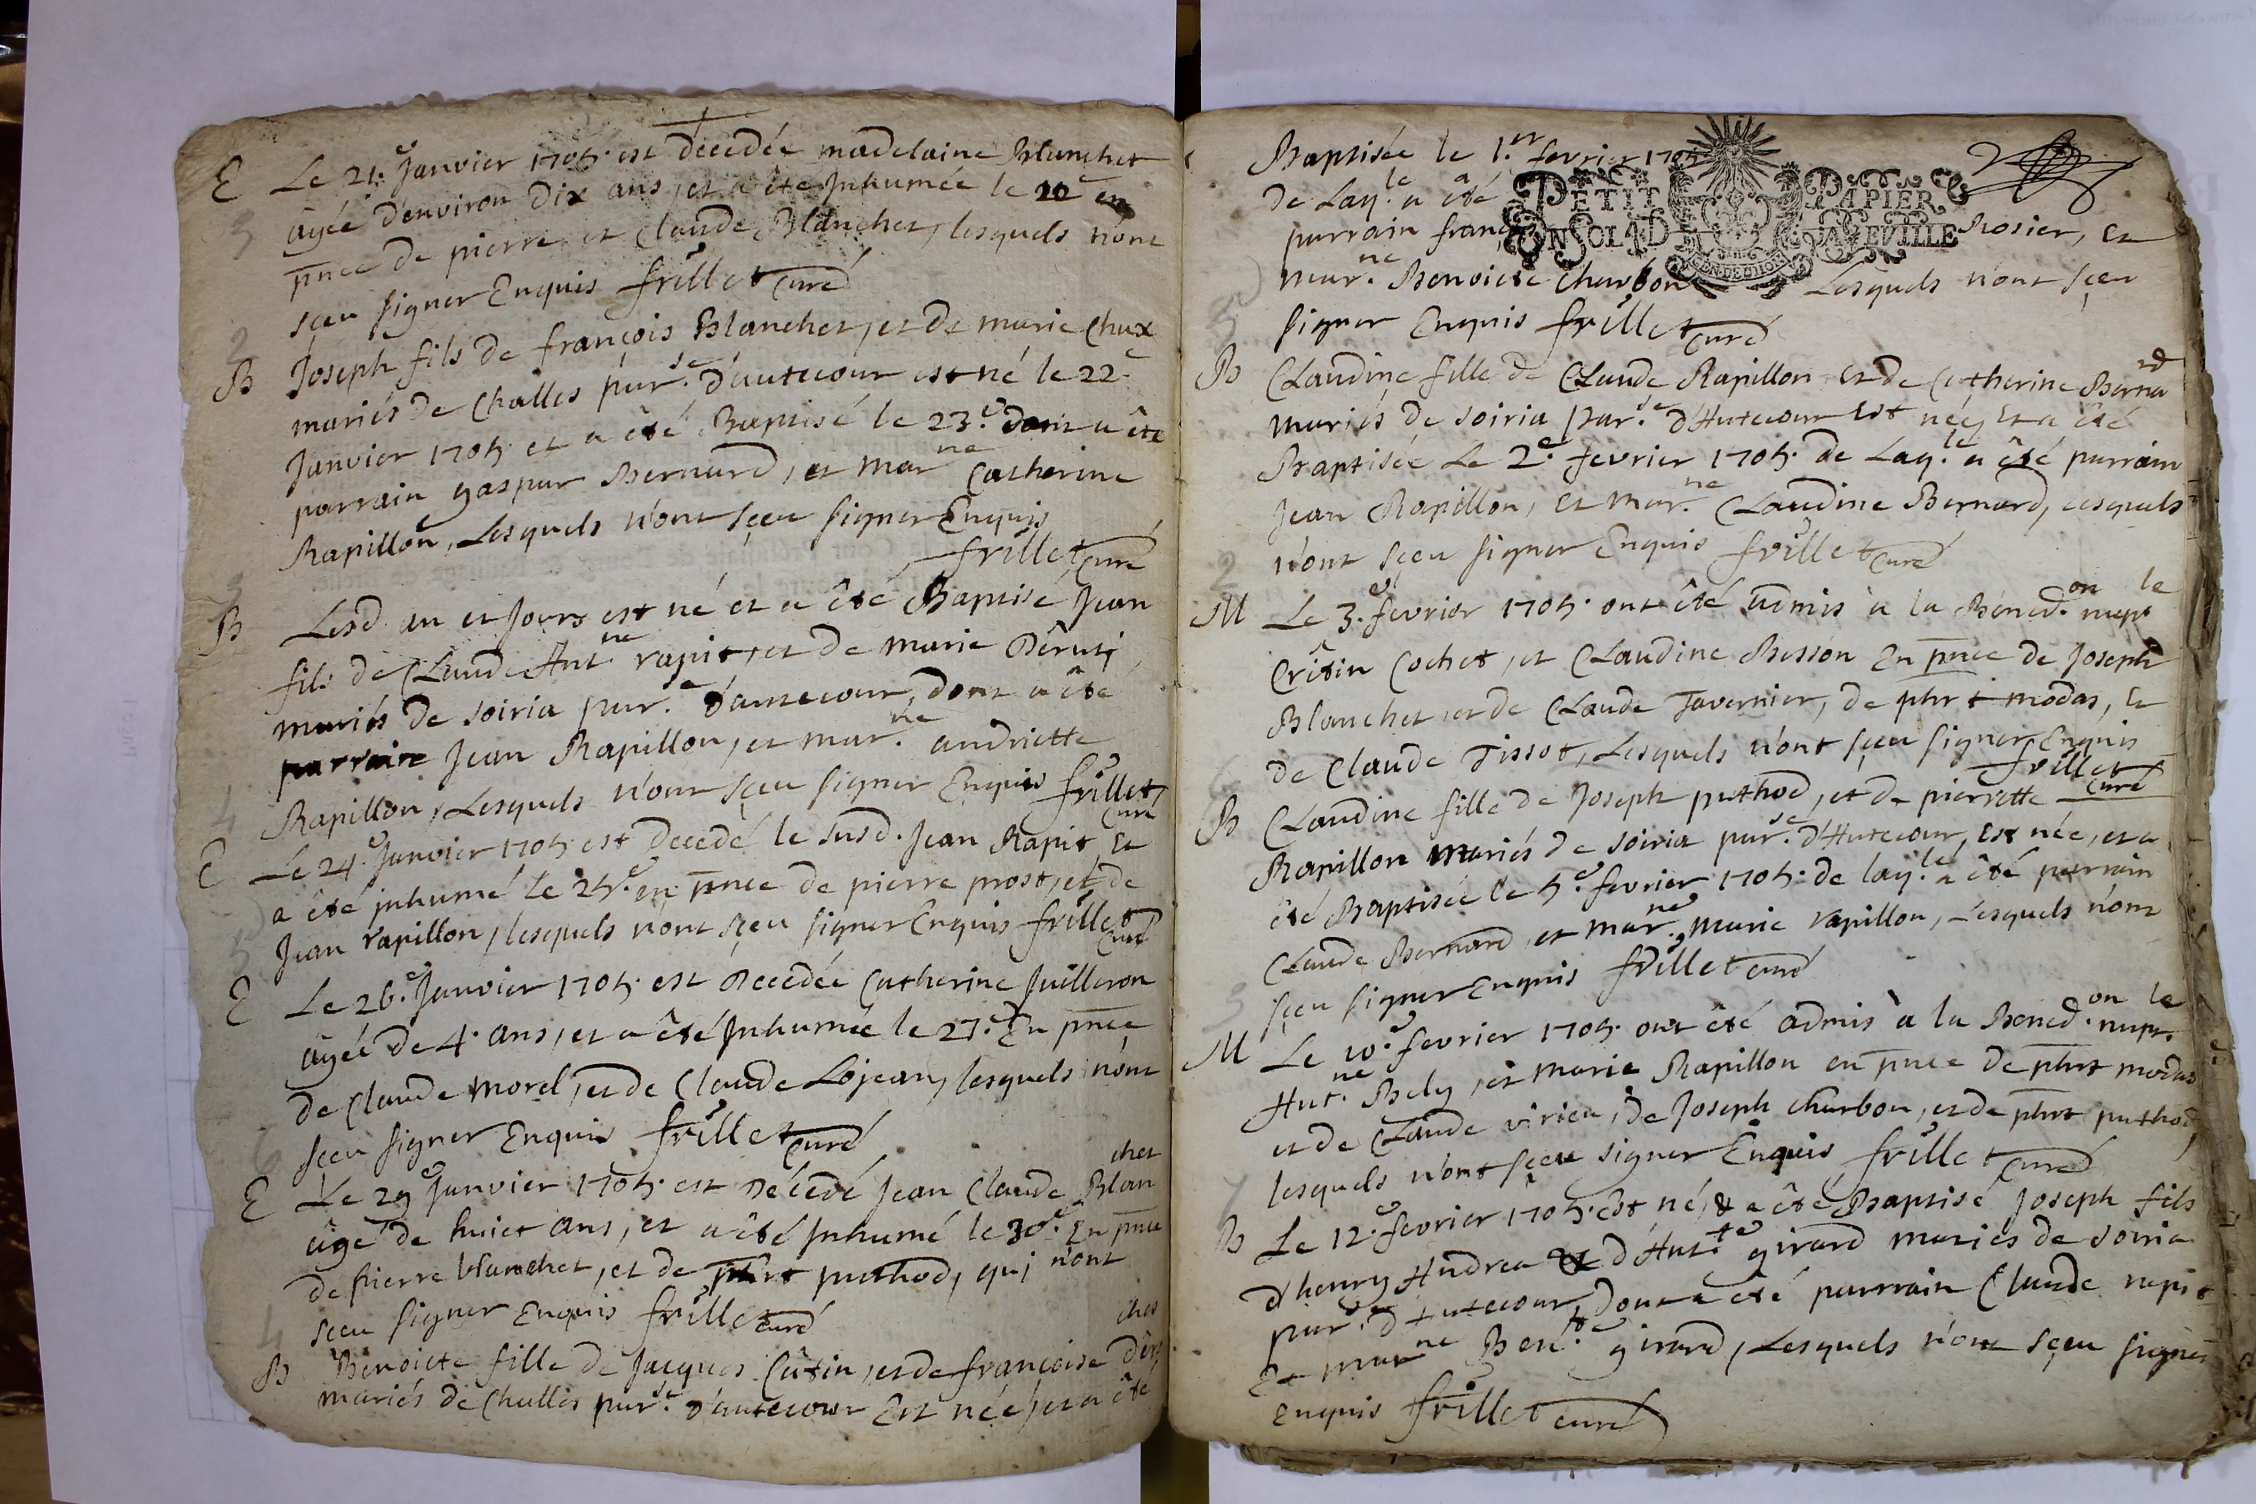 E Le 21.e Janvier 1705. est decedée madelaine Blanchet
agée d'environ dix ans, et a été Inhumée le 22e en
pnce de pierre et Claude Blanchet, lesquels n'ont
sçeu signer Enquis frillet curé
B Joseph fils de françois Blanchet, et de marie Chax
mariés de Challes par.se d'autecour est né le 22.e
Janvier 1705. et a été Baptisé le 23.e dont a été
parrain gaspar Bernard, et mar.ne Catherine
Rapillon, Lesquels n'ont sçeu signer Enquis
frillet curé
B Lesd. an et Jours est né et a été Baptisé Jean
fils de Claude Ant.ne rapit, et de marie
mariés de soiria par.e d'autecour, dont a été
parrain Jean Rapillon, et mar.ne andriette
Rapillon, Lesquels n'ont sçeu signer Enquis frillet curé
E Le 24.e Janvier 1705. est decedé le susd. Jean Rapit, et
a été inhumé le 25.e en pnce de pierre prost, et de
Jean rapillon, lesquels n'ont sçeu signer Enquis frillet curé
E Le 26.e Janvier 1705. est decedée Catherine Juilleron
âgée de 4. ans, et a été Inhumée le 27.e En pnce
de Claude morel, et de Claude Lojean, lesquels n'ont
sçeu signer Enquis frillet curé
E Le 29e Janvier 1705. est décédé Jean Claude Blanchet
âgé de huict ans, et a été Inhumé le 30.e En pnce
de pierre blanchet, et de phrt puthod, qui n'ont
sçeu signer Enquis frillet curé
B Benoicte fille de Jacques Câtin, et de françoise
mariés de Challes par.se d'autecour Est née, et a été
Baptisée le 1.er fevrier 1705
de Laq.le a été
parrain françois Rosier, et
PETIT PAPIER
mar.ne Benoicte Charbon Lesquels n'ont sçeu
signer Enquis frillet curé
B Claudine fille de Claude Rapillon et de Catherine Bernard
mariés de soiria par.se d'Hutecour est née, et a été
Baptisée Le 2.e fevrier 1705. de Laq.le a été parrain
Jean Rapillon, et mar.ne Claudine Bernard, lesquels
n'ont sçeu signer Enquis frillet curé
M Le 3.e fevrier 1705. ont été admis a la Bened.on nupt.le
Crîtin Cochet, et Claudine Besson En pnce de Joseph
Blanchet, et de Claude Tavernier, de phrt modas, et
de Claude Tissot, Lesquels n'ont sçeu signer Enquis
frillet curé
B Claudine fille de Joseph puthod, et de pierrette
Rapillon mariés de soiria par.se d'Hutecour, est née, et a
été Baptisée le 5.e fevrier 1705. de laq.le a été parrain
Claude Bernard, et mar.ne marie rapillon, Lesquels n'ont
sçeu signer Enquis frillet curé
M Le 10.e fevrier 1705. ont été admis à la Bened.on nupt.le
Ant.ne Bely, et marie Rapillon en pnce de phrt modas
et de Claude virieu, de Joseph charbon, et de phrt puthod,
lesquels n'ont sçeu signer Enquis frillet curé
B Le 12.e fevrier 1705. est né, & a été Baptisé Joseph fils
d'henry Andrea & d'Ant.te girard mariés de soiria
par. d'autecour, dont a été parrain Claude rapit
Et mar.ne Ben.te girard, Lesquels n'ont sçeu signer
Enquis frillet curé